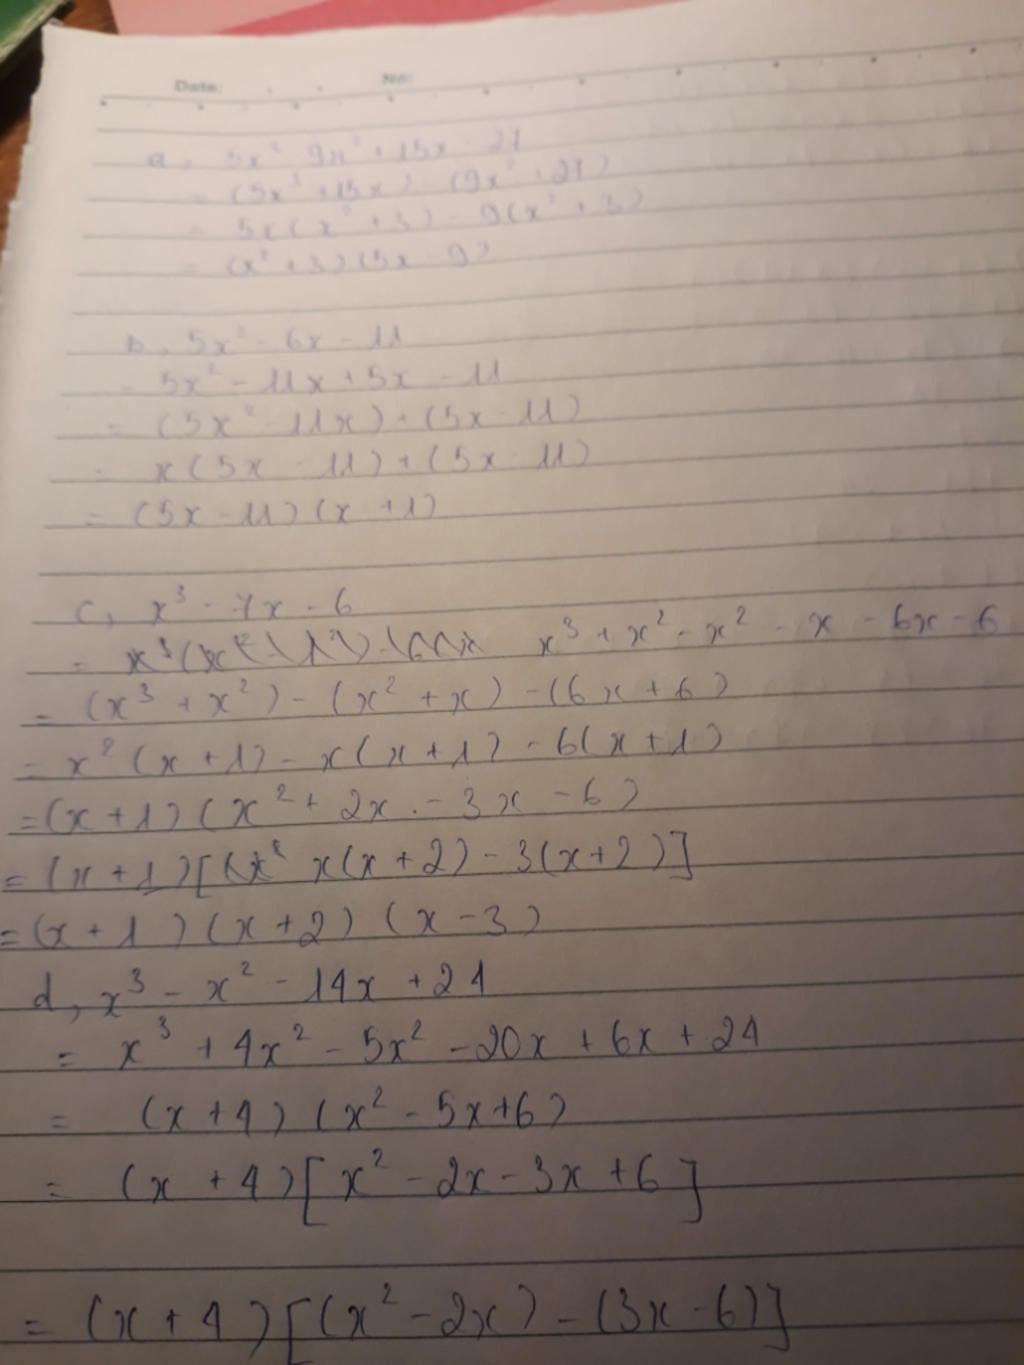 Date: No:
a, 5x² - 9x² + 15x - 27
= (5x³ + 15x) - (9x² + 27)
= 5x(x² + 3) - 9(x² + 3)
= (x² + 3)(5x - 9)
b, 5x² - 6x - 11
= 5x² - 11x + 5x - 11
= (5x² - 11x) + (5x - 11)
= x(5x - 11) + (5x - 11)
= (5x - 11)(x + 1)
c, x³ - 7x - 6
= x³ + x² - x² - x - 6x - 6
= (x³ + x²) - (x² + x) - (6x + 6)
= x²(x + 1) - x(x + 1) - 6(x + 1)
= (x + 1)(x² + 2x - 3x - 6)
= (x + 1)[x(x + 2) - 3(x + 2)]
= (x + 1)(x + 2)(x - 3)
d, x³ - x² - 14x + 24
= x³ + 4x² - 5x² - 20x + 6x + 24
= (x + 4)(x² - 5x + 6)
= (x + 4)[x² - 2x - 3x + 6]
= (x + 4)[(x² - 2x) - (3x - 6)]